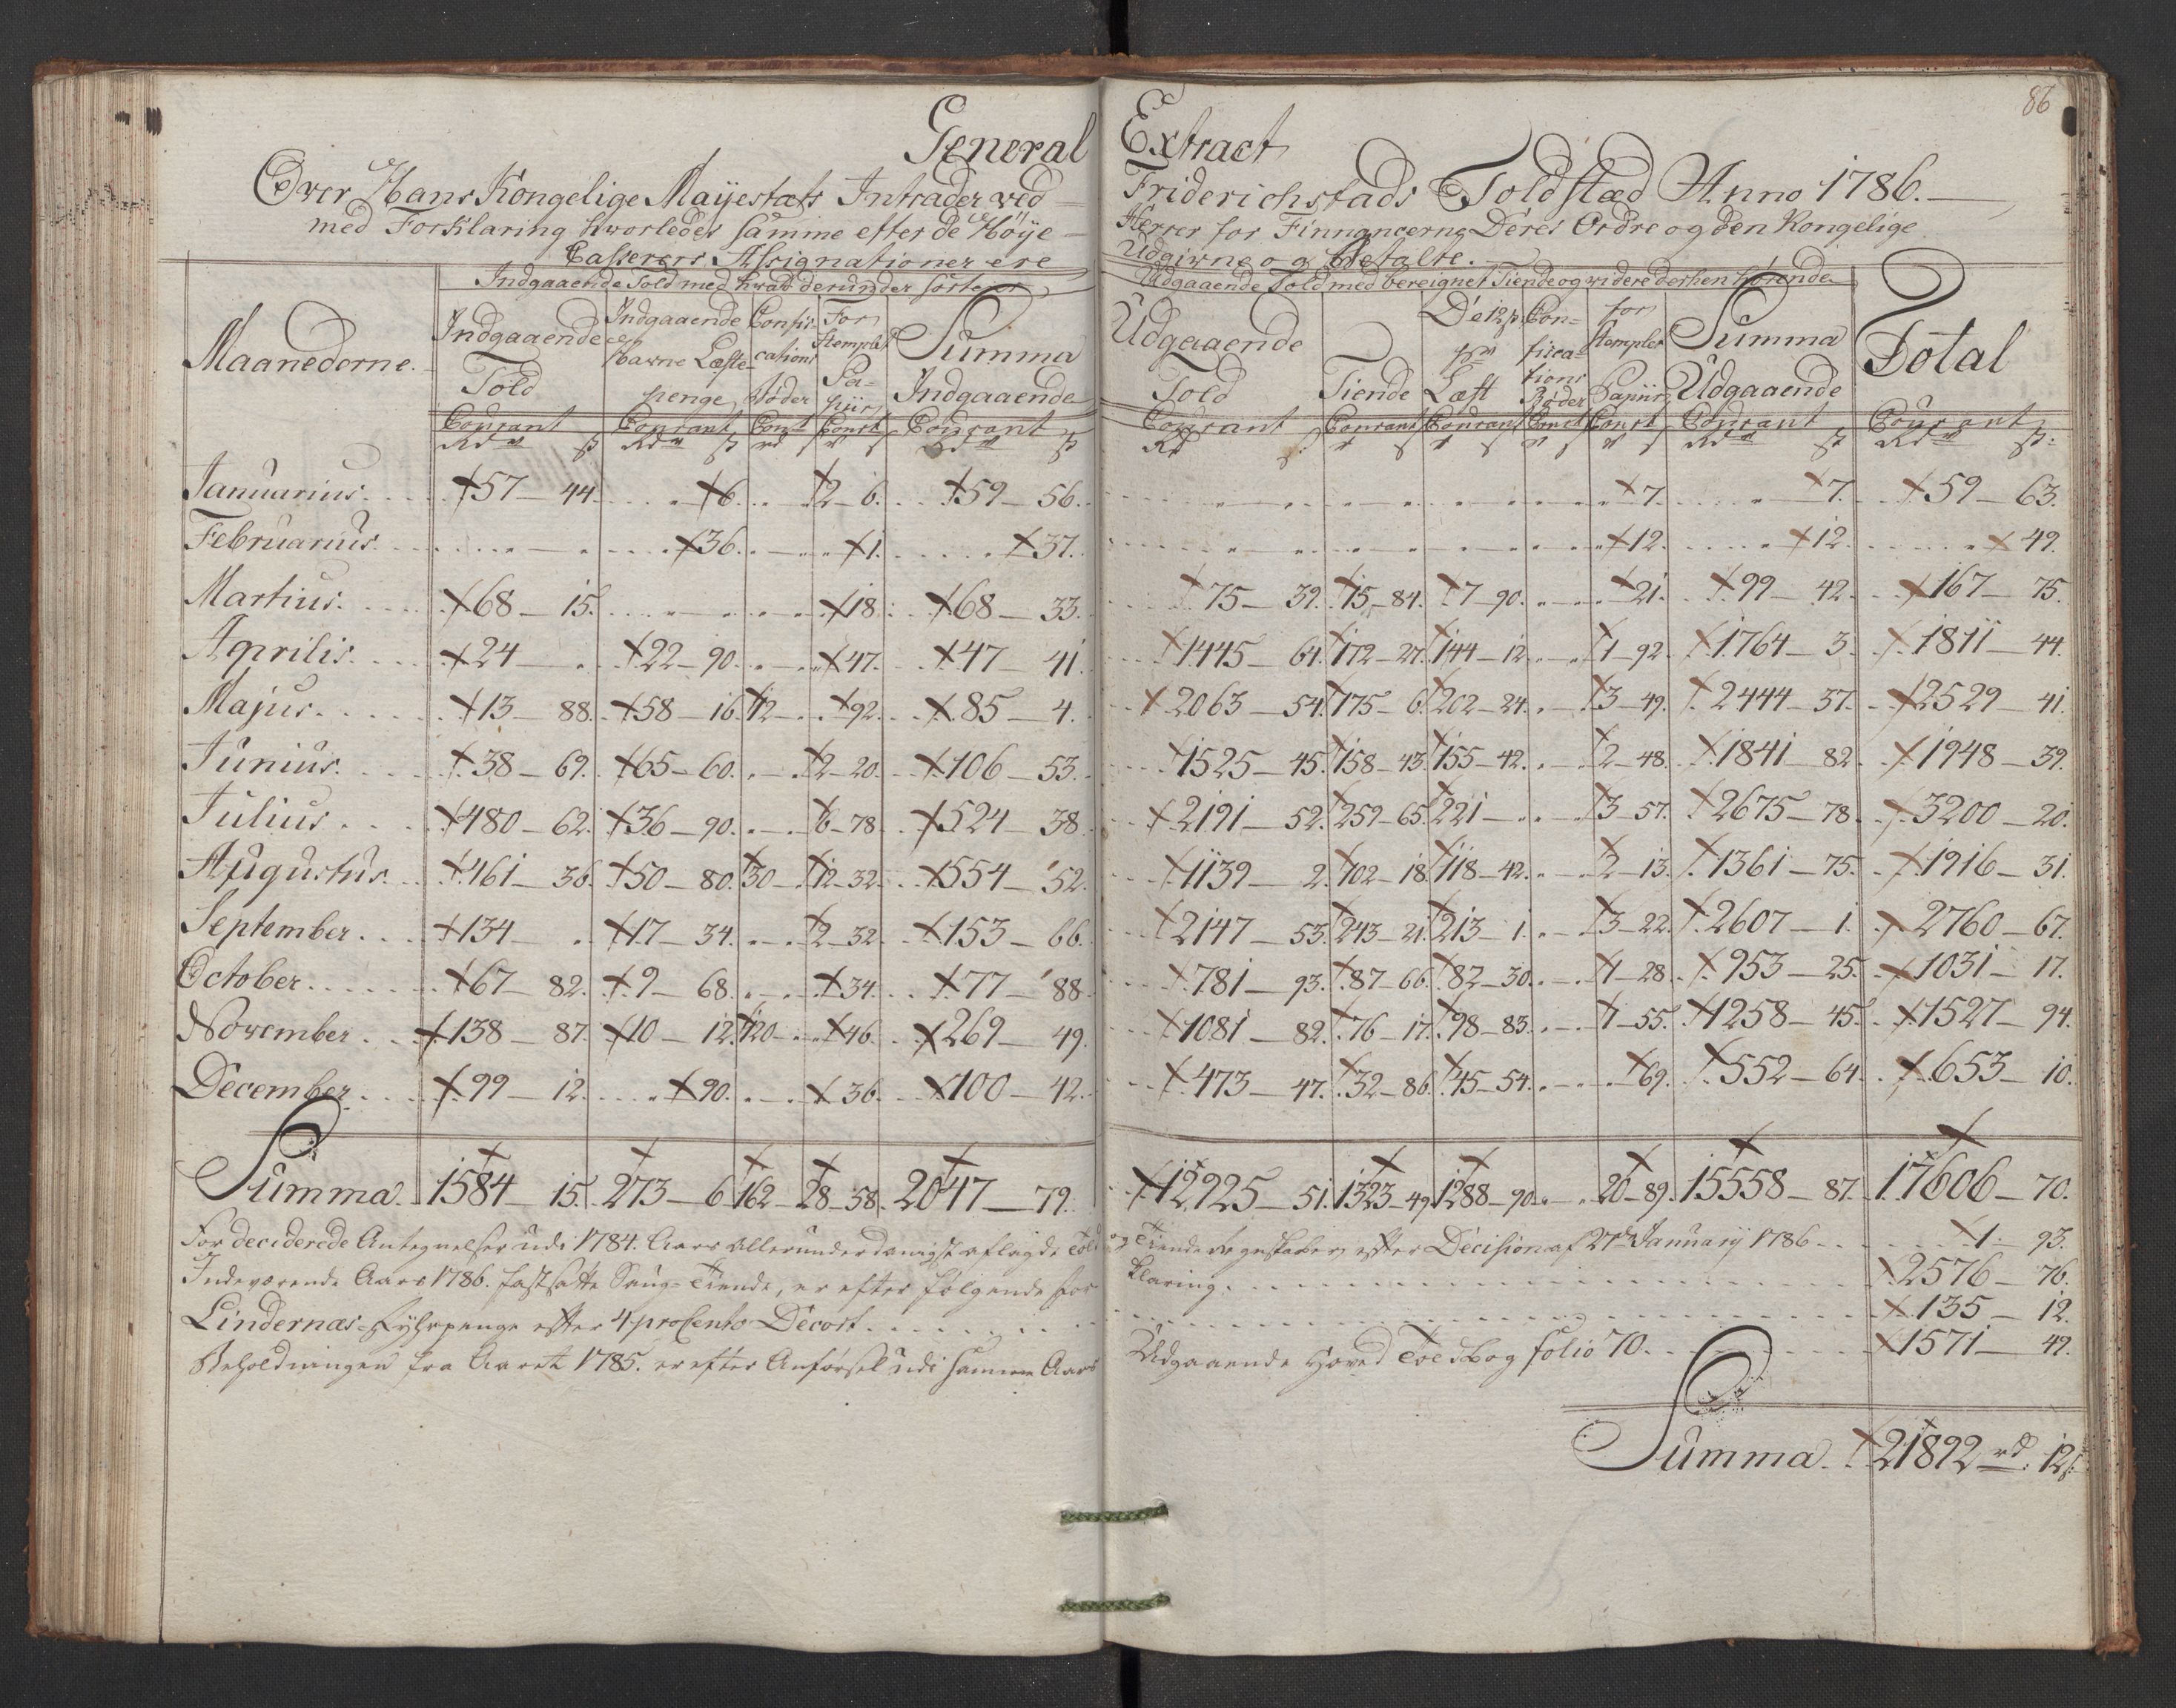 86
General Extract
Over Hans Kongelige Mayestæts Intrader ved Friderichstads Toldstæd Anno 1786.
med Forklaring hvorledes samme efter de Høye Herrer for Finnancerne Deres Ordre og den Kongelige
Casserers Assignationer ere Udgivne og Betalte.
Indgaaende Told med hvad derunder sorterer | Udgaaende Told med bereignet Tiende og videre derhen hørende
Maanederne. | Indgaaende Told | Indgaaende Havne Læste penge | Confis cations Bøder | For Stemplet Pa- piir | Summa Indgaaende | Udgaaende Told | Tiende | De 12 ß pr Læst | Con- fisca- tions Bøder | for Stemplet Papiir | Summa Udgaaende | Total
Courant | Courant | Cour | Court | Courant | Courant | Courant | Courant | Court | Court | Courant | Courant
Rdr ß | Rdr ß | rd ß | r ß | Rdr ß | Rd ß | r ß | r ß | r ß | r ß | Rdr ß | Rdr ß
Januarius. | 57 – 44. | 6. | | 2 – 6. | 59 – 56. | | | | | 7. | 7. | 59 – 63.
Februarius. | | 36. | | 1. | 37. | | | | | 12. | 12. | 49.
Martius. | 68 – 15. | | | 18. | 68 – 33. | 75 – 39. | 15 – 84. | 7 – 90. | | 21. | 99 – 42. | 167 – 75.
Aprilis. | 24 – | 22 – 90. | | 47. | 47 – 41. | 1445 – 64. | 172 – 27. | 144 – 12. | | 1 – 92. | 1764 – 3. | 1811 – 44.
Majus. | 13 – 88. | 58 – 16. | 12 – | 92. | 85 – 4. | 2063 – 54. | 175 – 6. | 202 – 24. | | 3 – 49. | 2444 – 37. | 2529 – 41.
Junius. | 38 – 69. | 65 – 60. | | 2 – 20. | 106 – 53. | 1525 – 45. | 158 – 43. | 155 – 42. | | 2 – 48. | 1841 – 82. | 1948 – 39.
Julius. | 480 – 62. | 36 – 90. | | 6 – 78. | 524 – 38. | 2191 – 52. | 259 – 65. | 221 – | | 3 – 57. | 2675 – 78. | 3200 – 20.
Augustus. | 461 – 36. | 50 – 80. | 30 – | 12 – 32. | 554 – 52. | 1139 – 2. | 102 – 18. | 118 – 42. | | 2 – 13. | 1361 – 75. | 1916 – 31.
September. | 134 – | 17 – 34. | | 2 – 32. | 153 – 66. | 2147 – 53. | 243 – 21. | 213 – 1. | | 3 – 22. | 2607 – 1. | 2760 – 67.
October. | 67 – 82. | 9 – 68. | | 34. | 77 – 88. | 781 – 93. | 87 – 66. | 82 – 30. | | 1 – 28. | 953 – 25. | 1031 – 17.
November. | 138 – 87. | 10 – 12. | 120 – | 46. | 269 – 49. | 1081 – 82. | 76 – 17. | 98 – 83. | | 1 – 55. | 1258 – 45. | 1527 – 94.
December. | 99 – 12. | 90. | | 36. | 100 – 42. | 473 – 47. | 32 – 86. | 45 – 54. | | 69. | 552 – 64. | 653 – 10.
Summa. | 1584 – 15. | 273 – 6. | 162 – | 28 – 58. | 2047 – 79. | 12925 – 51. | 1323 – 49. | 1288 – 90. | | 20 – 89. | 15558 – 87. | 17606 – 70.
For deciderede Antegnelser udi 1784. Aars allerunderdanigst aflagde Told og Tiende Regnskaber, efter Decision af 27de January 1786 1 – 93.
Indeværende Aars 1786. fastsatte Saug-Tiende, er efter følgende for klaring. 2576 – 76.
Lindernæs-Fyhrpenge efter 4 pro Cento Decort 135 – 12.
Beholdningen fra Aaret 1785. er efter Anførsel udi samme Aars Udgaaende Hoved Toldbog folio 70. 1571 – 49.
Summa. 21892 rd 12 ß.